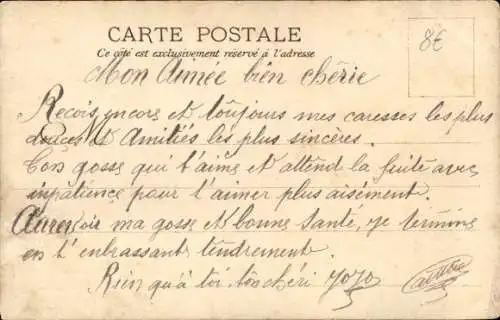 CARTE POSTALE
Ce côté est exclusivement réservé à l'adresse
8€
Mon Aimée bien chérie
Reçois encore et toujours mes caresses les plus
douces et Amitiés les plus sincères.
Ton gosse qui t'aime et attend la fuite avec
impatience pour l'aimer plus aisément.
Aurevoir ma gosse et bonne santé, je termine
en t'enbrassant tendrement.
Rien qu'à toi ton chéri Jojo